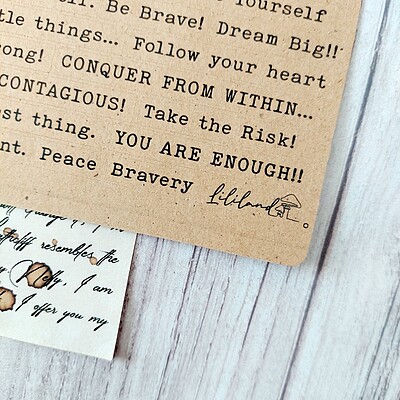 Yourself
Be Brave! Dream Big!!
things... Follow your heart
CONQUER FROM WITHIN...
CONTAGIOUS! Take the Risk!
thing. YOU ARE ENOUGH!!
Peace Bravery Lililand
resembles the
Nelly, I am
I offer you my